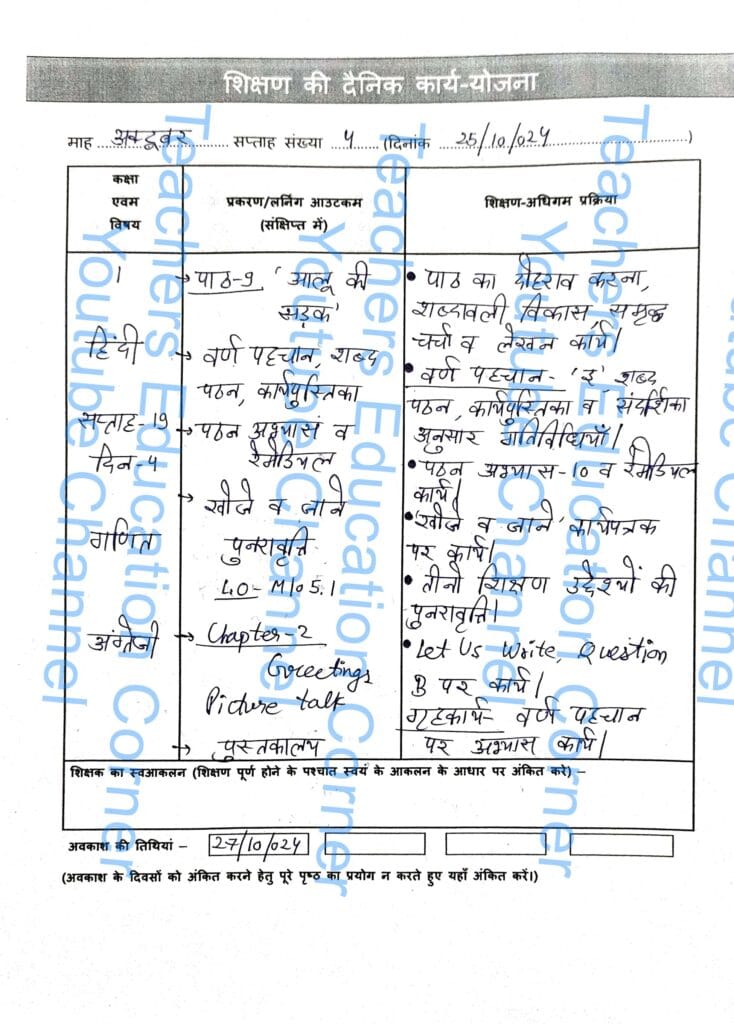 शिक्षण की दैनिक कार्य-योजना
माह अक्टूबर सप्ताह संख्या 4 (दिनांक 25/10/024)
कक्षा
एवम
विषय
प्रकरण/लर्निंग आउटकम
(संक्षिप्त में)
शिक्षण-अधिगम प्रक्रिया
1
हिंदी
सप्ताह-19
दिन-4
गणित
अंग्रेजी
→ पाठ-9 'आलू की
सड़क'
→ वर्ण पहचान, शब्द
पठन, कार्यपुस्तिका
→ पठन अभ्यास व
रेमेडियल
→ खोजें व जाने
पुनरावृत्ति
LO- M105.1
→ Chapter-2
Greetings
Picture talk
→ पुस्तकालय
• पाठ का दोहराव करना,
शब्दावली विकास, समृद्ध
चर्चा व लेखन कार्य।
• वर्ण पहचान- 'इ' शब्द
पठन, कार्यपुस्तिका व संदर्शिका
अनुसार गतिविधियाँ।
• पठन अभ्यास-10 व रेमेडियल
कार्य।
• 'खोजें व जाने' कार्यपत्रक
पर कार्य।
• तीनो शिक्षण उद्देश्यों की
पुनरावृत्ति।
• Let Us Write, Question
B पर कार्य।
गृहकार्य- वर्ण पहचान
पर अभ्यास कार्य।
शिक्षक का स्वआकलन (शिक्षण पूर्ण होने के पश्चात स्वयं के आकलन के आधार पर अंकित करे) –
अवकाश की तिथियां – 27/10/024
(अवकाश के दिवसों को अंकित करने हेतु पूरे पृष्ठ का प्रयोग न करते हुए यहाँ अंकित करें।)
Teachers Education Corner
Youtube Channel
Teachers Education Corner
Youtube Channel
Teachers Education Corner
Youtube Channel
Teachers Educa